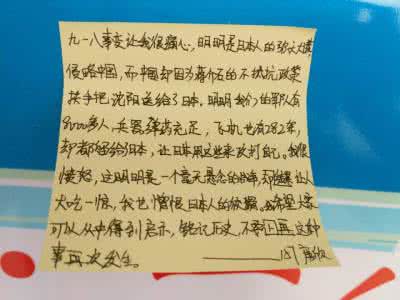 九一八事变让我很痛心,明明是日本人的
侵略中国,而中国却因为蒋介石的不抵抗政策
拱手把沈阳送给了日本。明明我们的军队有
8000多人,兵器弹药充足,飞机也有262年,
却都留给日本,让日本用这些来攻打自己。我很
愤怒,这明明是一个毫无悬念的战争,却让人
大吃一惊,我也憎恨日本人的。希望大家
可以从中得到启示,铭记历史,不要再这种
事再次发生。